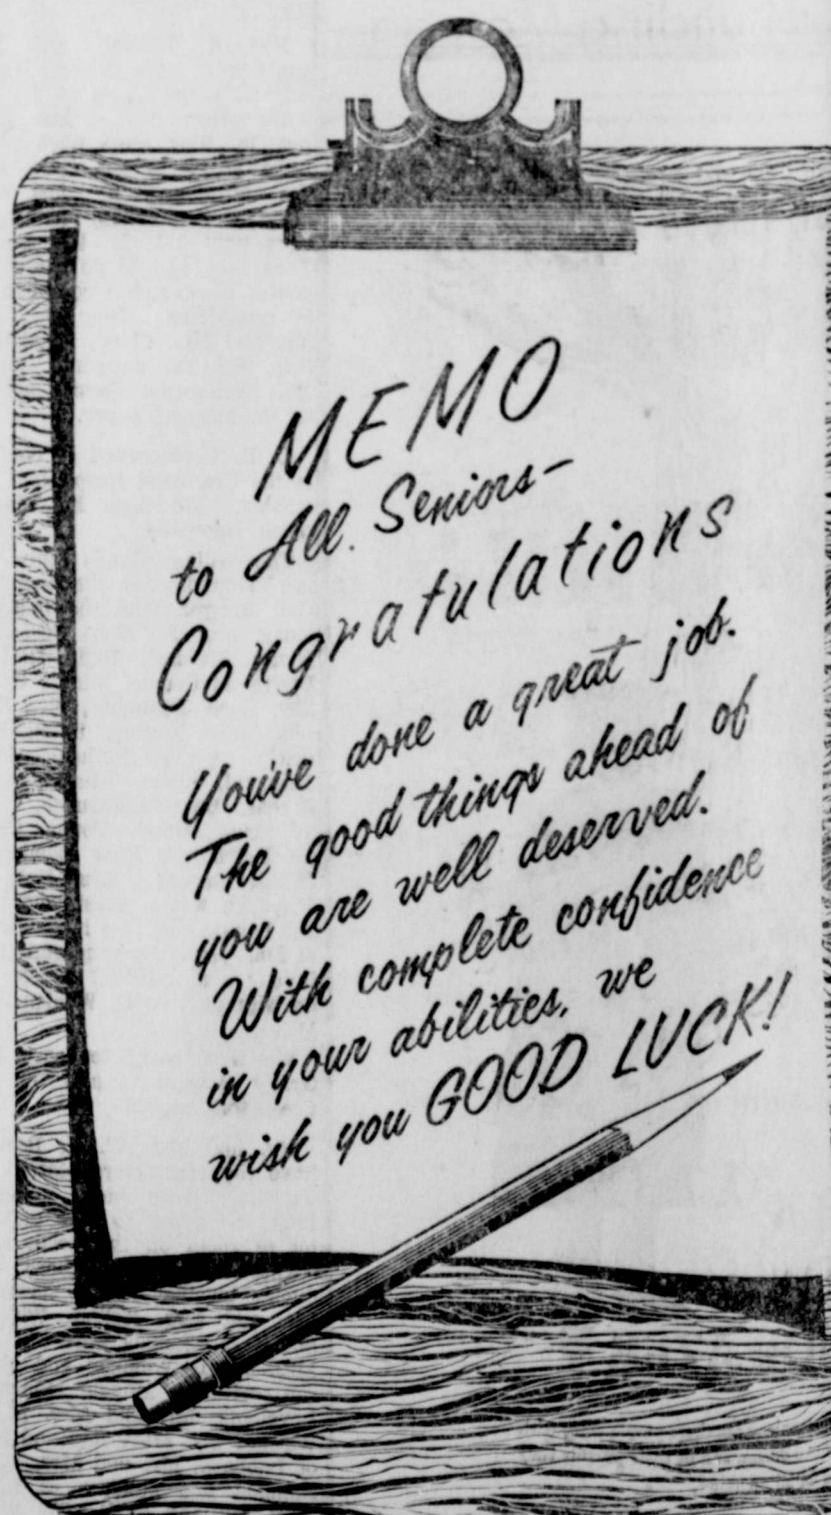 MEMO
to All Seniors—
Congratulations
You've done a great job.
The good things ahead of
you are well deserved.
With complete confidence
in your abilities, we
wish you GOOD LUCK!